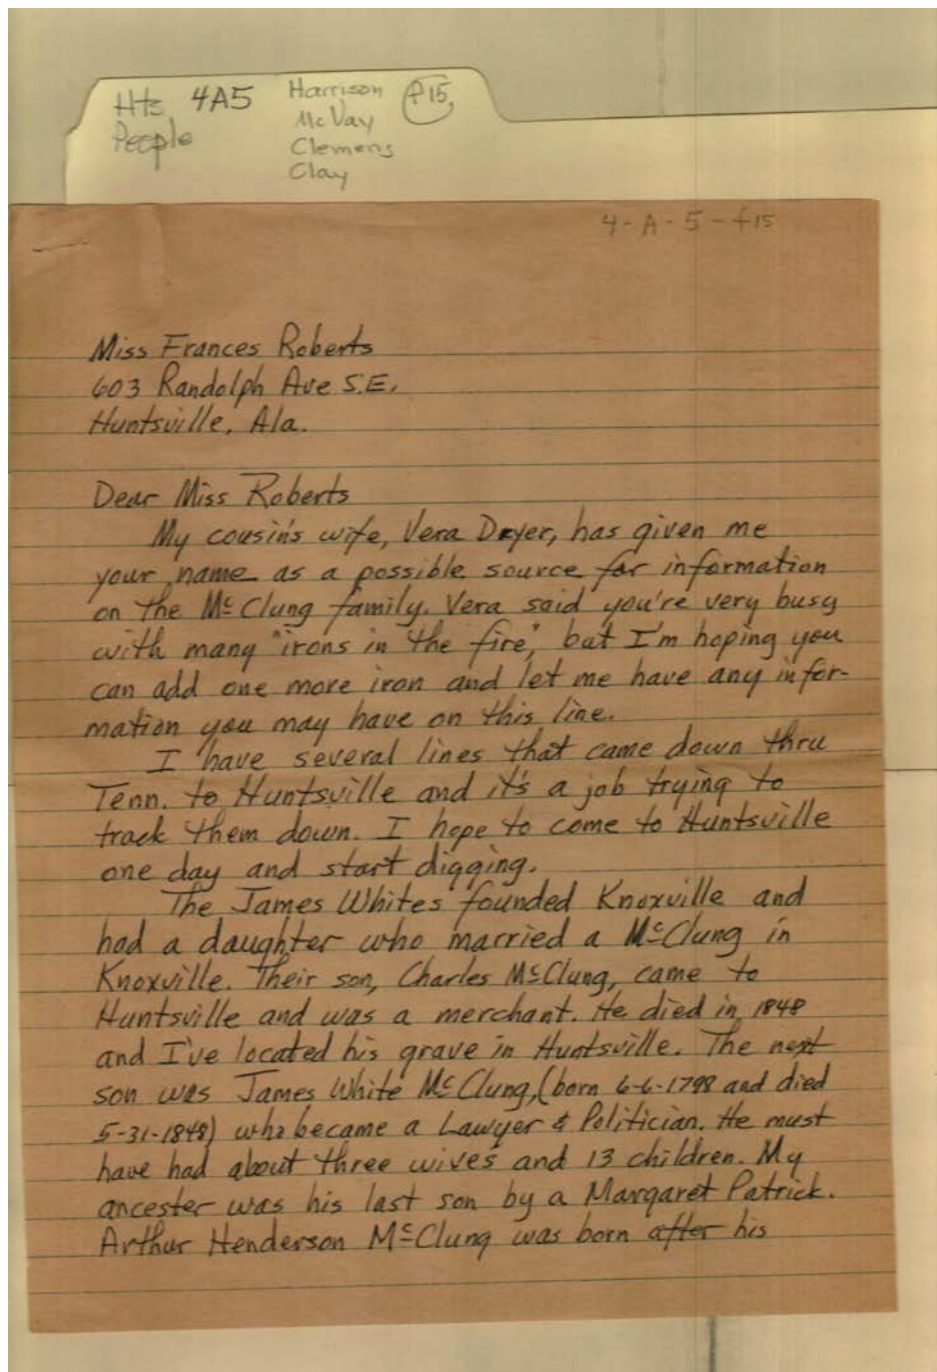 Hts 4A5 Harrison f15
People McVay
Clemens
Clay
4-A-5-f15
Miss Frances Roberts
603 Randolph Ave S.E.
Huntsville, Ala.
Dear Miss Roberts
My cousin's wife, Vera Dryer, has given me
your name as a possible source for information
on the McClung family. Vera said you're very busy
with many "irons in the fire", but I'm hoping you
can add one more iron and let me have any infor-
mation you may have on this line.
I have several lines that came down thru
Tenn. to Huntsville and it's a job trying to
track them down. I hope to come to Huntsville
one day and start digging.
The James Whites founded Knoxville and
had a daughter who married a McClung in
Knoxville. Their son, Charles McClung, came to
Huntsville and was a merchant. He died in 1848
and I've located his grave in Huntsville. The next
son was James White McClung, (born 6-6-1798 and died
5-31-1848) who became a Lawyer & Politician. He must
have had about three wives and 13 children. My
ancester was his last son by a Margaret Patrick.
Arthur Henderson McClung was born after his